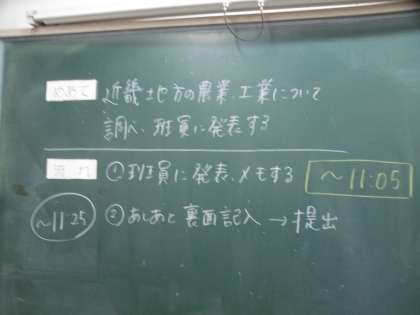 めあて 近畿地方の農業、工業について
調べ、班員に発表する
流れ ①班員に発表、メモする ～11:05
～11:25 ②あしあと裏面記入 → 提出